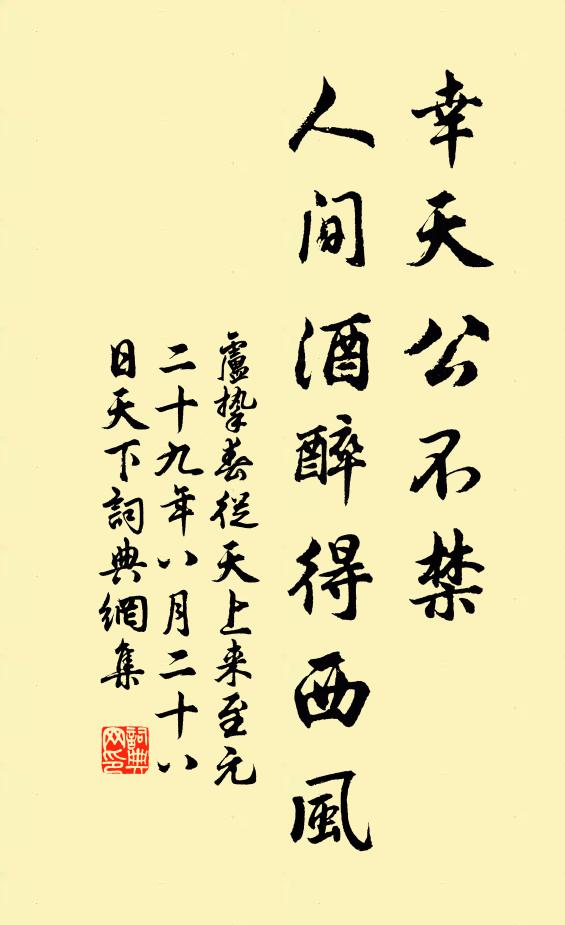 幸天公不禁
人间酒醉得西風
盧挚春從天上来至元
二十九年八月二十八
日天下詞典網集
詞典
网印